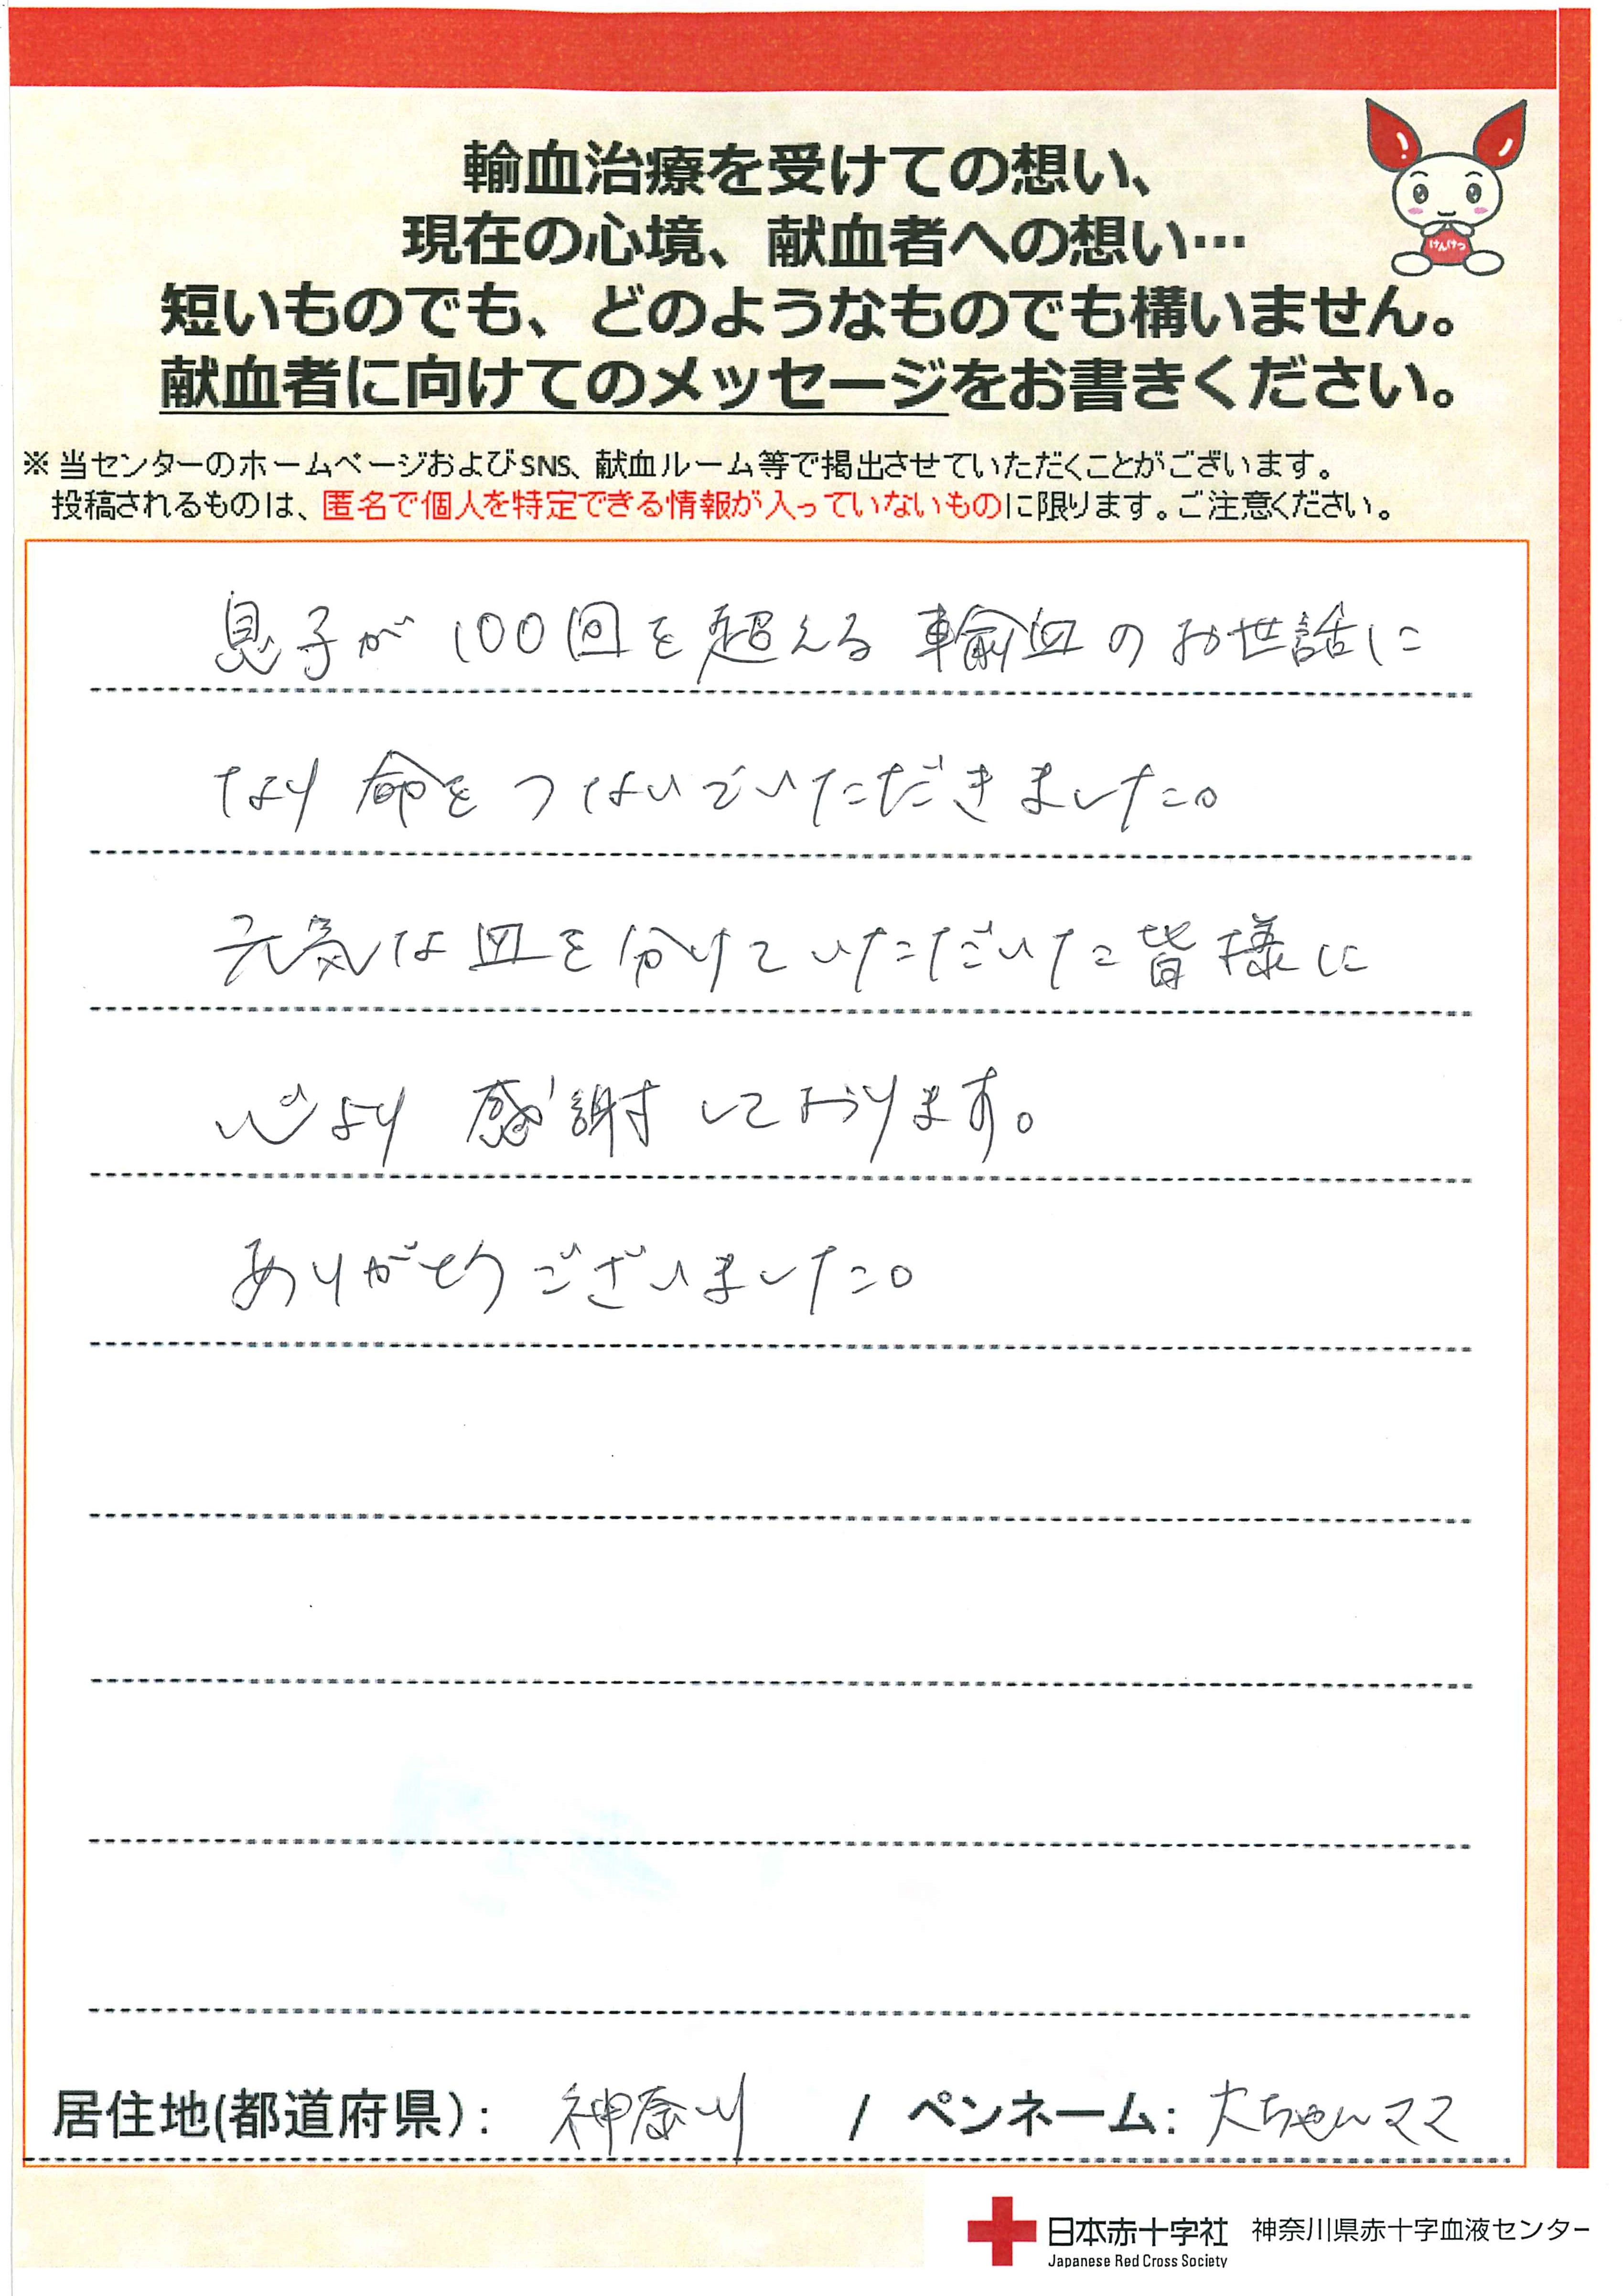 輸血治療を受けての想い、
現在の心境、献血者への想い…
短いものでも、どのようなものでも構いません。
献血者に向けてのメッセージをお書きください。
けんけつ
※当センターのホームページおよびSNS、献血ルーム等で掲出させていただくことがございます。
投稿されるものは、匿名で個人を特定できる情報が入っていないものに限ります。ご注意ください。
息子が100回を超える輸血のお世話に
なり命をつないでいただきました。
元気な血を分けていただいた皆様に
心より感謝しております。
ありがとうございました。
居住地(都道府県): 神奈川 / ペンネーム: 大ちゃんママ
日本赤十字社 神奈川県赤十字血液センター
Japanese Red Cross Society